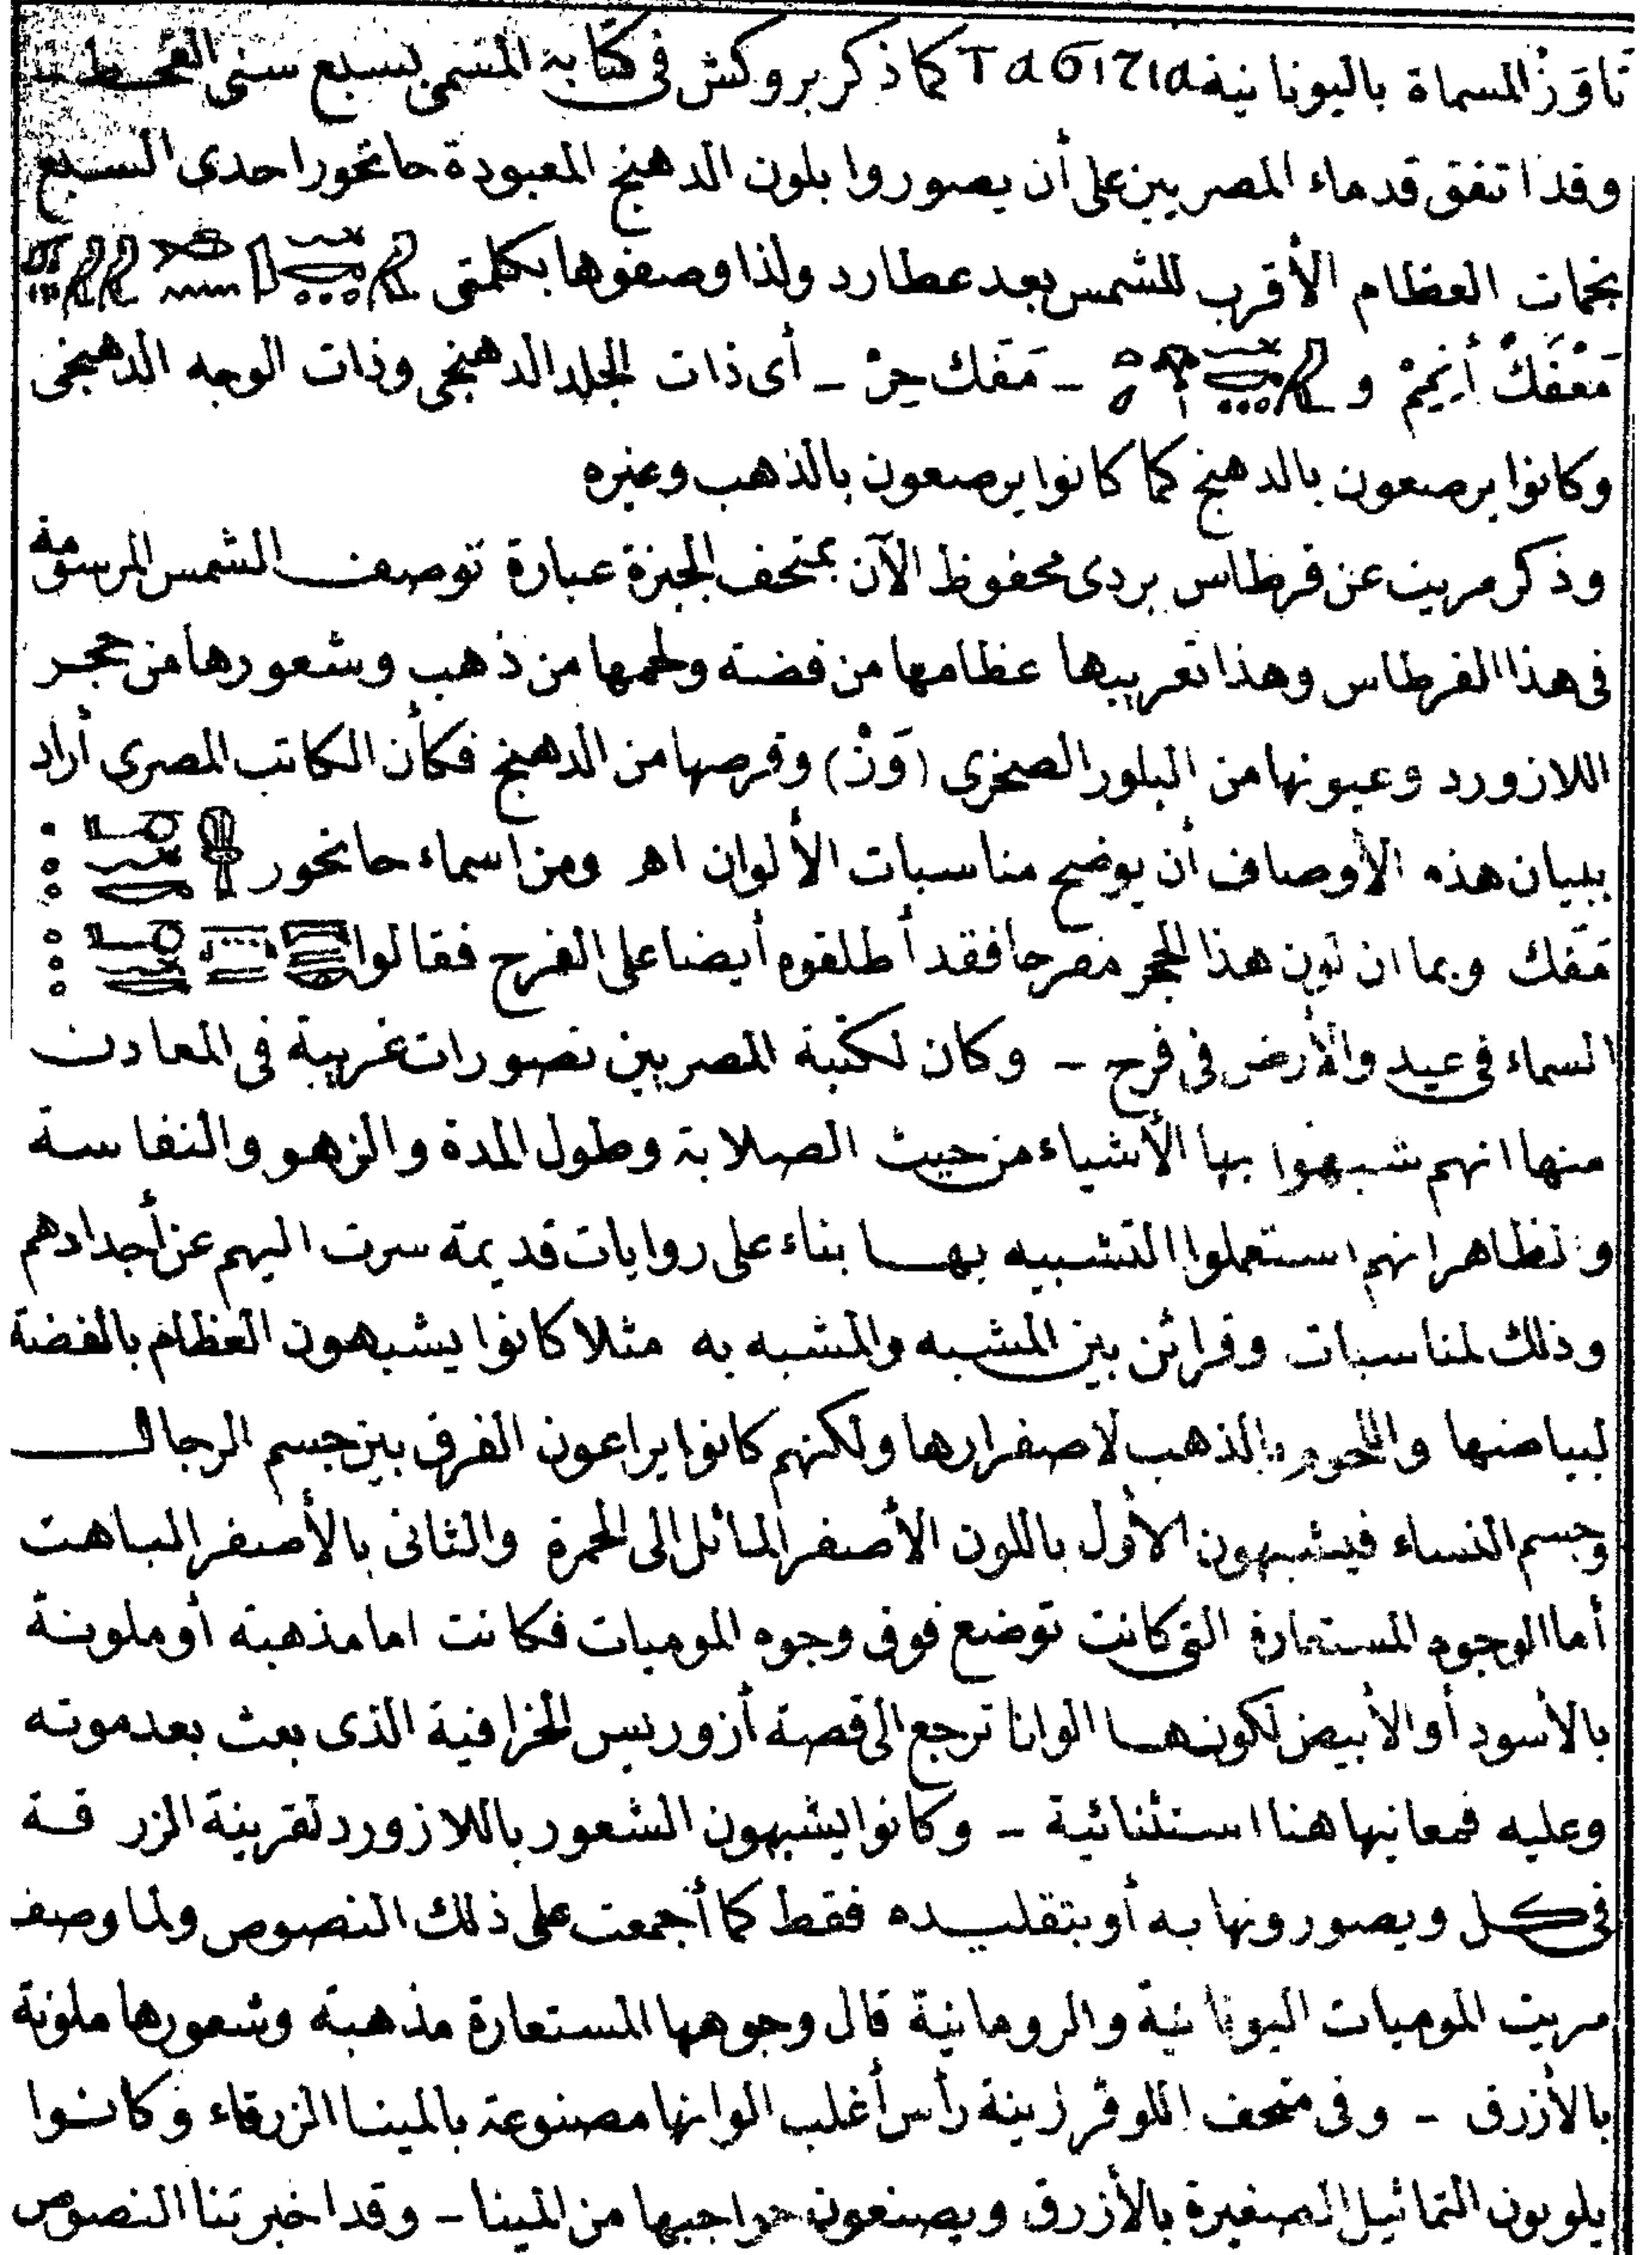 تاوَرْ المسماة باليونانية Taбızıa كما ذكر بروكش فى كتابه المسمى بسبع سنى القحط
وقد اتفق قدماء المصريين على أن يصوروا بلون الدهنج المعبودة حاتحور احدى السبع
نجمات العظام الأقرب للشمس بعد عطارد ولذا وصفوها بكلمتى
مَعْفَكْ أنِيمْ و – مَفَك حِرْ – أى ذات الجلد الدهنجى وذات الوجه الدهنجى
وكانوا يرصعون بالدهنج كما كانوا يرصعون بالذهب وغيره
وذكر مريت عن قرطاس بردى محفوظ الآن بمتحف الجيزة عبارة توصف الشمس المرسومة
فى هذا القرطاس وهذا تعريبها عظامها من فضة ولحمها من ذهب وشعورها من حجر
اللازورد وعيونها من البلور الصخرى (وَزْ) وقرصها من الدهنج فكأن الكاتب المصرى أراد
ببيان هذه الأوصاف أن يوضح مناسبات الألوان اهـ ومن اسماء حاتحور
مَفَك وبما ان لون هذا الحجر مفرحا فقد أطلقوه أيضا على الفرح فقالوا
السماء فى عيد والأرض فى فرح – وكان لكتبة المصريين تصورات غريبة فى المعادن
منها انهم شبهوا بها الأشياء من حيث الصلابة وطول المدة والزهو والنفاسة
والظاهر انهم استعملوا التشبيه بها بناء على روايات قديمة سرت اليهم عن أجدادهم
وذلك لمناسبات وقرائن بين المشبه والمشبه به مثلا كانوا يشبهون العظام بالفضة
لبياضها واللحوم بالذهب لاصفرارها ولكنهم كانوا يراعون الفرق بين جسم الرجال
وجسم النساء فيشبهون الأول باللون الأصفر المائل الى الحمرة والثانى بالأصفر الباهت
أما الوجوه المستعارة التى كانت توضع فوق وجوه الموميات فكانت اما مذهبة أو ملونة
بالأسود أو الأبيض لكونها الوانا ترجع الى قصة أزوريس الخرافية الذى بعث بعد موته
وعليه فمعانيها هنا استثنائية – وكانوا يشبهون الشعور باللازورد لقرينة الزرقة
فى كل ويصورونها به أو بتقليده فقط كما أجمعت على ذلك النصوص ولما وصف
مريت الموميات اليونانية والرومانية قال وجوهها المستعارة مذهبة وشعورها ملونة
بالأزرق – وفى متحف اللوڤر زينة رأس أغلب الوانها مصنوعة بالمينا الزرقاء وكانوا
يلونون التماثيل الصغيرة بالأزرق ويصنعون حواجبها من المينا – وقد اخبرتنا النصوص